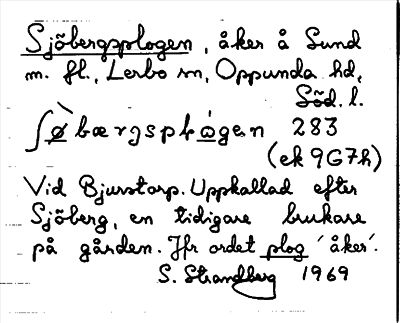 Sjöbergsplogen, åker å Sund
m. fl., Lerbo sn, Oppunda hd,
Söd. l.
ʃø̀bærgsplɷ́gen 283
(ek 9G7h)
Vid Bjurstorp. Uppkallad efter
Sjöberg, en tidigare brukare
på gården. Jfr ordet plog 'åker'.
S. Strandberg 1969